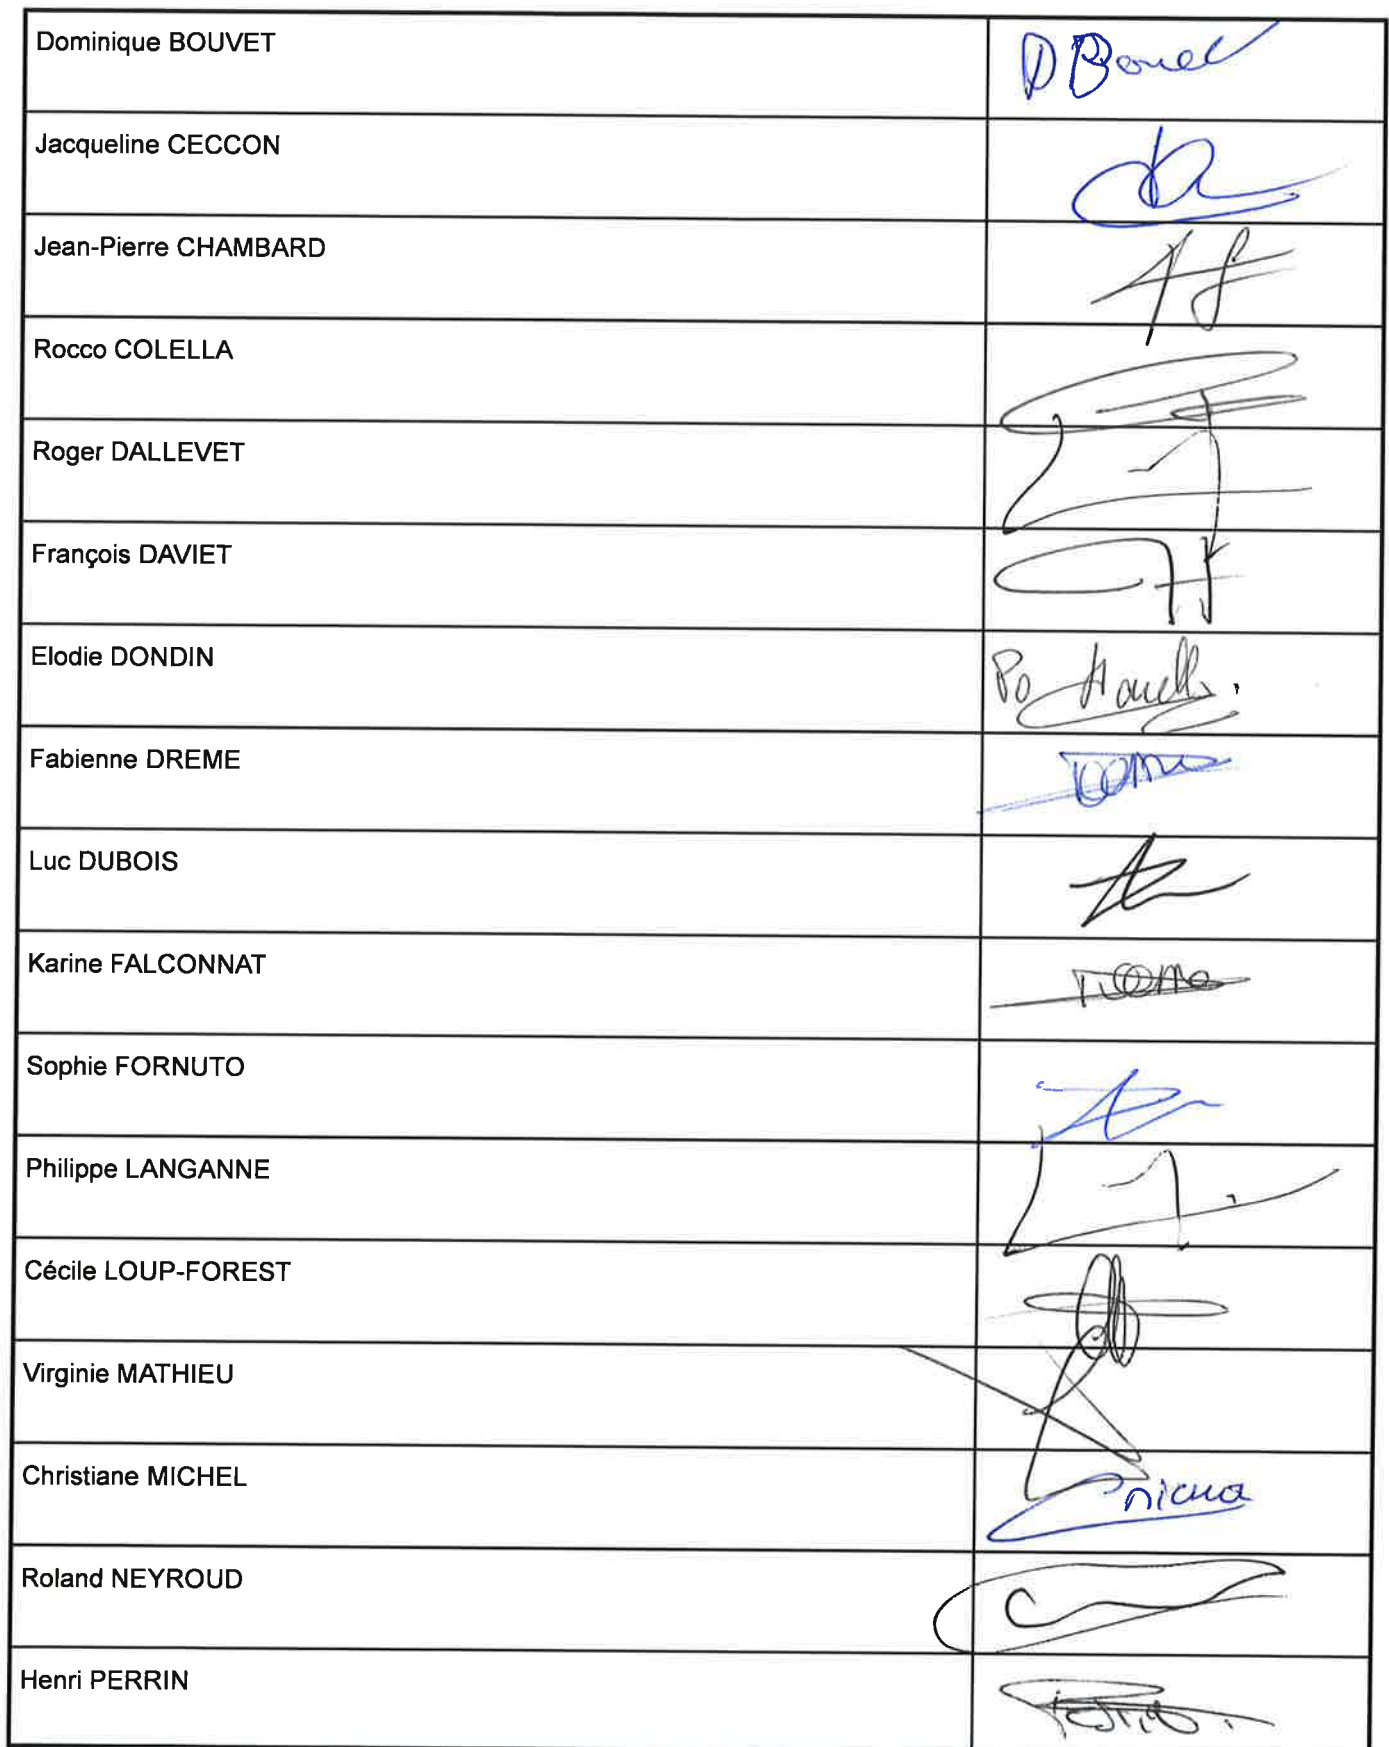 Dominique BOUVET
D Bouvet
Jacqueline CECCON
Jean-Pierre CHAMBARD
Rocco COLELLA
Roger DALLEVET
François DAVIET
Elodie DONDIN
Po
Fabienne DREME
Luc DUBOIS
Karine FALCONNAT
Sophie FORNUTO
Philippe LANGANNE
Cécile LOUP-FOREST
Virginie MATHIEU
Christiane MICHEL
Roland NEYROUD
Henri PERRIN